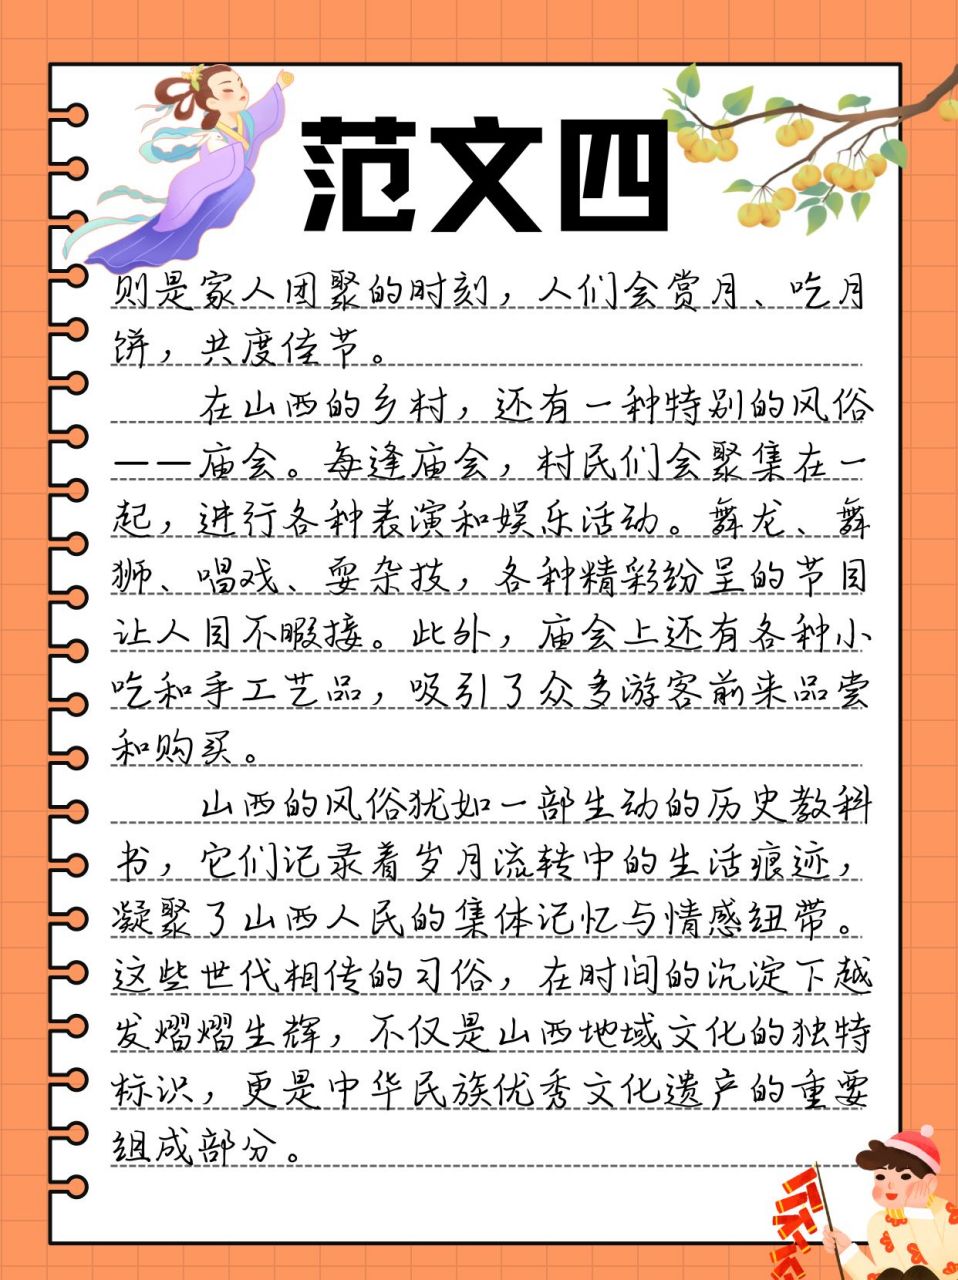 范文四
则是家人团聚的时刻，人们会赏月、吃月
饼，共度佳节。
在山西的乡村，还有一种特别的风俗
——庙会。每逢庙会，村民们会聚集在一
起，进行各种表演和娱乐活动。舞龙、舞
狮、唱戏、耍杂技，各种精彩纷呈的节目
让人目不暇接。此外，庙会上还有各种小
吃和手工艺品，吸引了众多游客前来品尝
和购买。
山西的风俗犹如一部生动的历史教科
书，它们记录着岁月流转中的生活痕迹，
凝聚了山西人民的集体记忆与情感纽带。
这些世代相传的习俗，在时间的沉淀下越
发熠熠生辉，不仅是山西地域文化的独特
标识，更是中华民族优秀文化遗产的重要
组成部分。